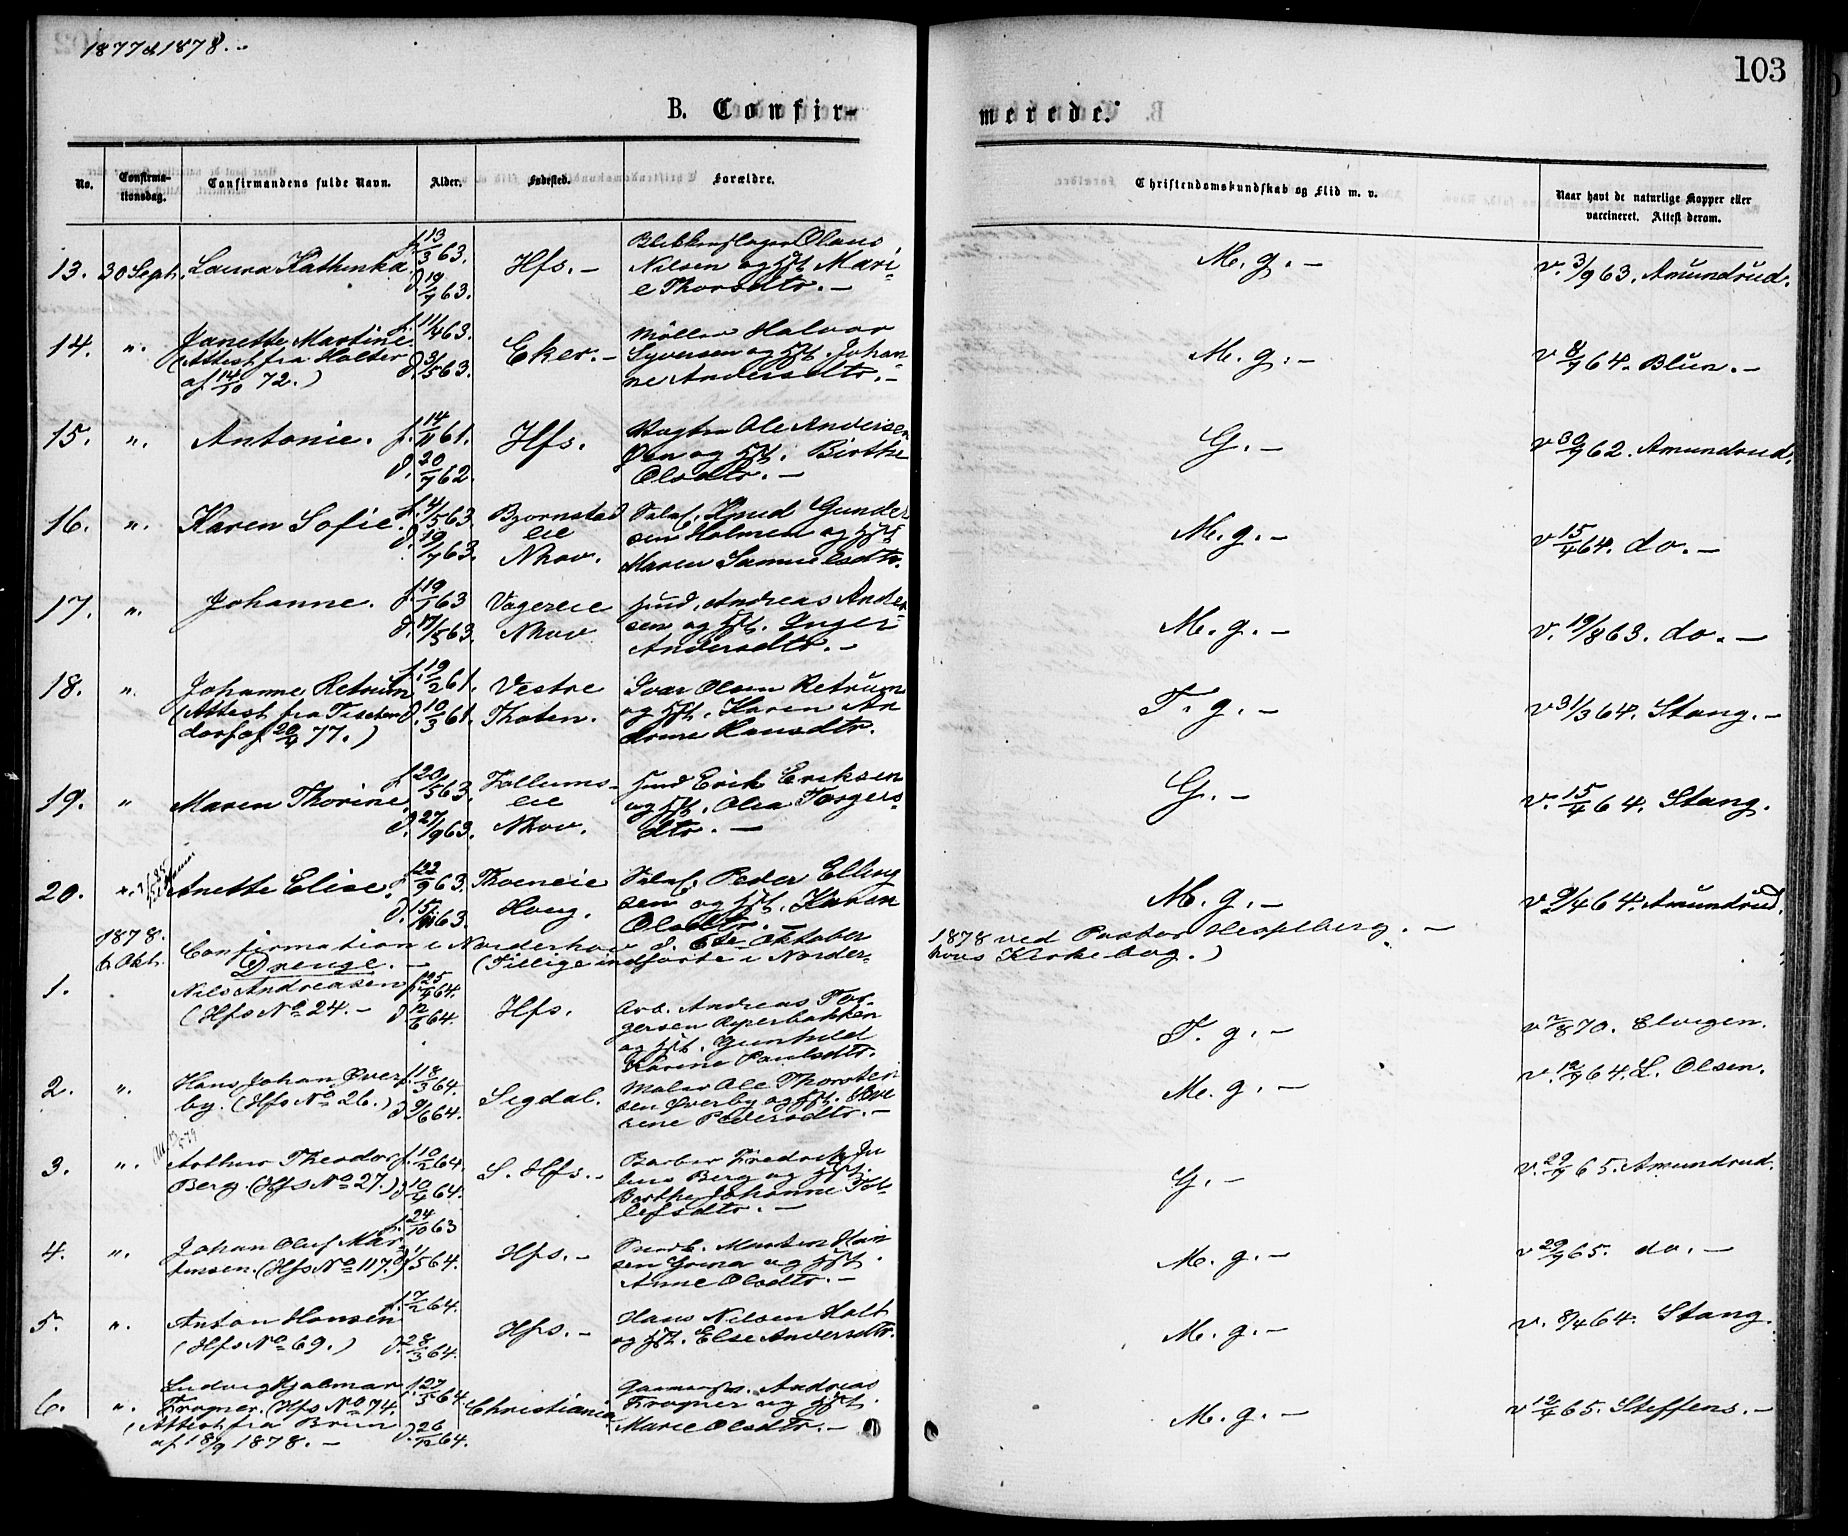 1877 & 1878.
103
B. Confir-
merede.
No.
Confirma-
tionsdag.
Confirmandens fulde Navn.
Alder.
Fødested.
Forældre.
Christendomskundskab og Flid m. v.
Naar havt de naturlige Kopper eller
vaccineret. Attest derom.
13. 30 Sept. Laura Kathinka f. 13/3 63. d. 19/7 63. Hfs. –
Olaus
Nilsen og Hst. Mari-
e Thorsdtr. –
M. g. – v. 3/9 63. Amundrud.
14. „ Janette Martine.
(Attest fra Holter
af 14/10 72.)
f. 11/4 63. d. 3/5 63. Eker. –
Møller Halvor
Syversen og Hst. Johan
ne Andersdtr. –
M. g. – v 8/7 64. Blün. –
15. „ Antonie. f. 14/11 61. d. 20/7 62. Hfs.
Vagtm Ole Andersen
Øen og Hst. Birthe
Olsdtr. –
G. – v 30/9 62. Amundrud.
16. „ Karen Sofie. f. 4/5 63. d. 19/7 63.
Bjørnstad
eie
Nhov.
Knud Gunder
sen Holmen og Hst
Maren Samuelsdtr.
M. g. – v 15/4 64. do. –
17. „ Johanne. f. 19/1 63 d. 17/5 63.
Vagereie
Nhov
Husd. Andreas Ander
sen og Hst. Inger
Andersdtr. –
M. g. – v. 19/8 63. do. –
18. „ Johanne Retrum
(Attest fra Tischen
dorf af 20/4 77.)
f. 19/2 61. d. 10/3 61.
Vestre
Thoten.
Ivar Olsen Retrum
og Hst. Karen An
drine Hansdtr.
T. g. – v 31/3 64. Stang. –
19. „ Maren Thorine. f. 20/5 63. d. 27/9 63.
Follums-
eie
Nhov.
Husd Erik Eriksen
og Hst. Olea Torgers-
dtr. –
G. – v. 15/4 64. Stang.
20. „ Anette Elise. f. 22/9 63. d. 15/11 63.
Thoeneie
Houg.
Peder Elling
sen og Hst. Karen
Olsdtr. –
M. g. – v 9/4 64. Amundrud.
1878.
6 Okt.
Confirmation i Norderhov d. 6te Oktober 1878 ved Pastor Hesselberg. –
Drenge. – (Tillige indførte i Norder-
hovs Kirkebog.)
1. Nils Andreasen
(Hfs No 24. –
f. 25/4 64. d. 12/6 64. Hfs.
Arb. Andreas Tor-
gersen Reperbakken
og Hst. Gunhild
Karine Paulsdtr.
T. g. – v 2/8 70. Elvigen.
2. „ Hans Johan Øver
by. (Hfs No 26.)
f. 18/3 64. d. 9/6 64. Sigdal.
Maler Ole Thorsten
sen Øverby og Hst.
rene Pedersdtr. –
M. g. – v. 12/9 64. L. Olsen.
3. „ Arthur Theodor
Berg. (Hfs No 27.)
f. 10/2 64. d. 10/4 64. S. Hfs. –
Barber Fredrik Ju
lius Berg og Hst.
Berthe Johanne Tol-
lefsdtr. –
G. – v. 29/9 65. Amundrud.
4. „ Johan Oluf Mar-
tinsen. (Hfs No 117.)
f. 24/10 63 d. 1/5 64. Hfs. –
Martin Han
sen og Hst.
Anne Olsdtr. –
M. g. – v 29/9 65. do. –
5. „ Anton Hansen
(Hfs No 69.)
f. 17/2 64. d. 28/3 64. Hfs. –
Hans Nilsen Holt
og Hst. Else Andersdtr.
M. g. – v. 8/4 64. Stang.
6. „ Ludvig Hjalmar
Frogner. (Hfs No 74.
(Attest fra Brun
af 18/9 1878. –
f. 27/5 64. d. 26/12 64. Christiania
Andreas
Frogner og Hst.
Marie Olsdtr. –
M. g. – v 12/4 65. Steffens. –